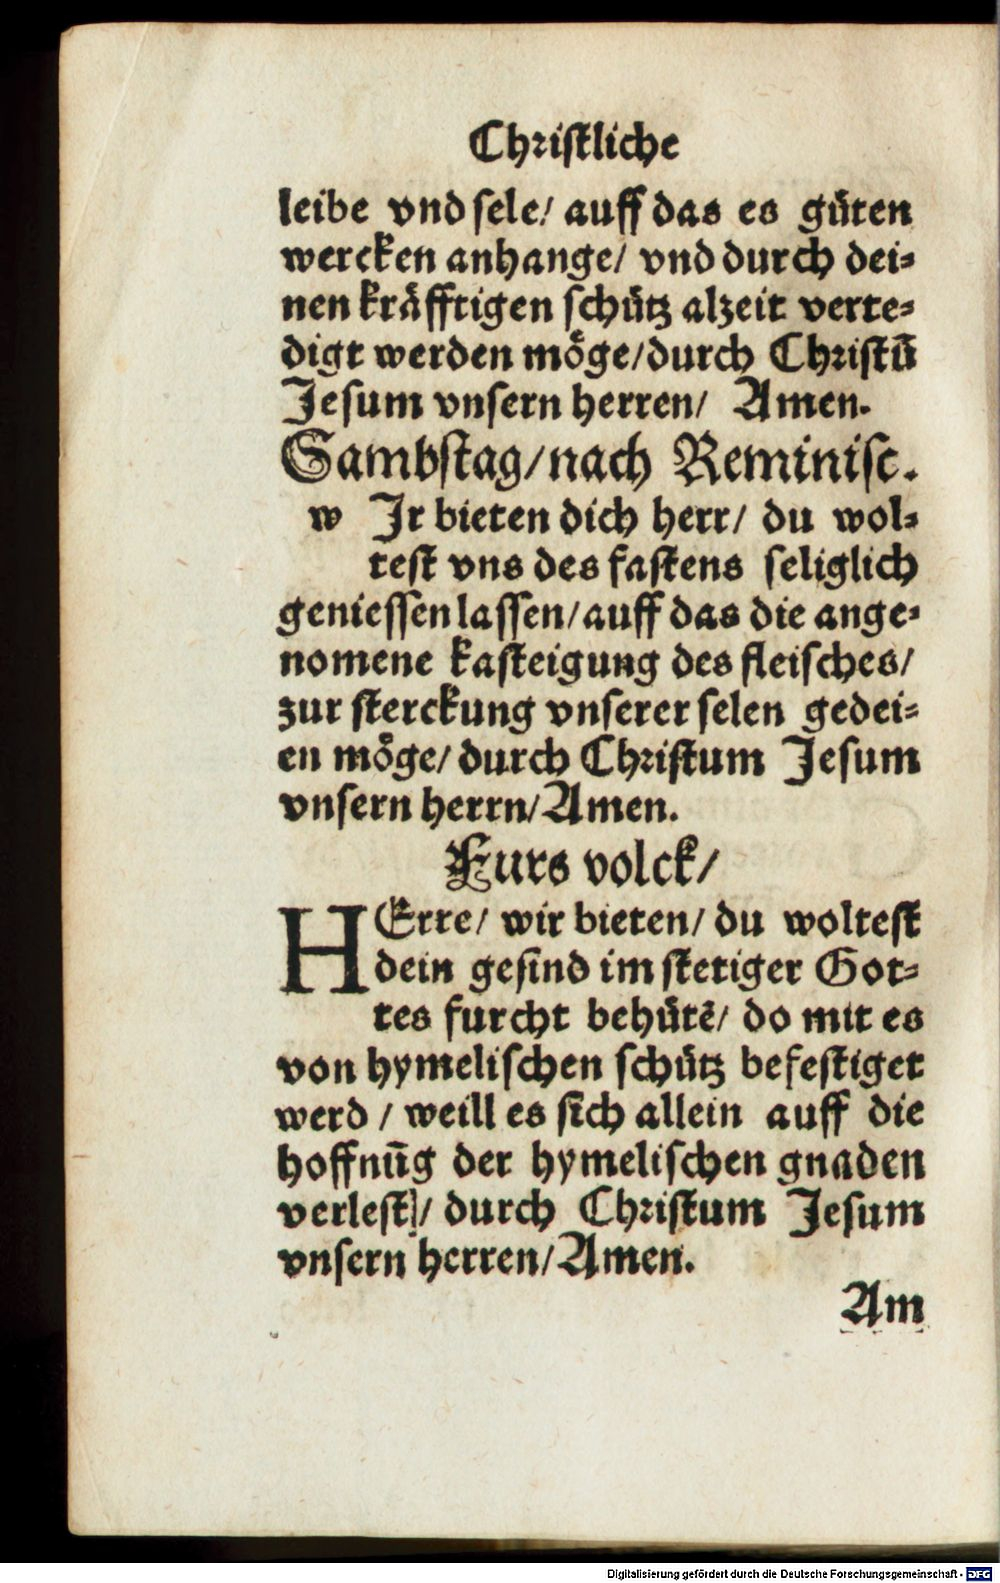 Christliche
leibe vnd sele/ auff das es gůten
wercken anhange/ vnd durch dei⸗
nen kråfftigen schůtz alzeit verte⸗
digt werden mőge/durch Christū
Jesum vnsern herren/ Amen.
Sambstag/nach Reminisc.
w Jr bieten dich herr/ du wol⸗
test vns des fastens seliglich
geniessen lassen/auff das die ange⸗
nomene kasteigung des fleisches/
zur sterckung vnserer selen gedei⸗
en möge/ durch Christum Jesum
vnsern herrn/Amen.
Furs volck/
HErre/ wir bieten/ du woltest
dein gesind im stetiger Got⸗
tes furcht behůtē/ do mit es
von hymelischen schůtz befestiget
werd / weill es sich allein auff die
hoffnūg der hymelischen gnaden
verlest]/ durch Christum Jesum
vnsern herren/Amen.
Am
Digitalisierung gefördert durch die Deutsche Forschungsgemeinschaft - DFG